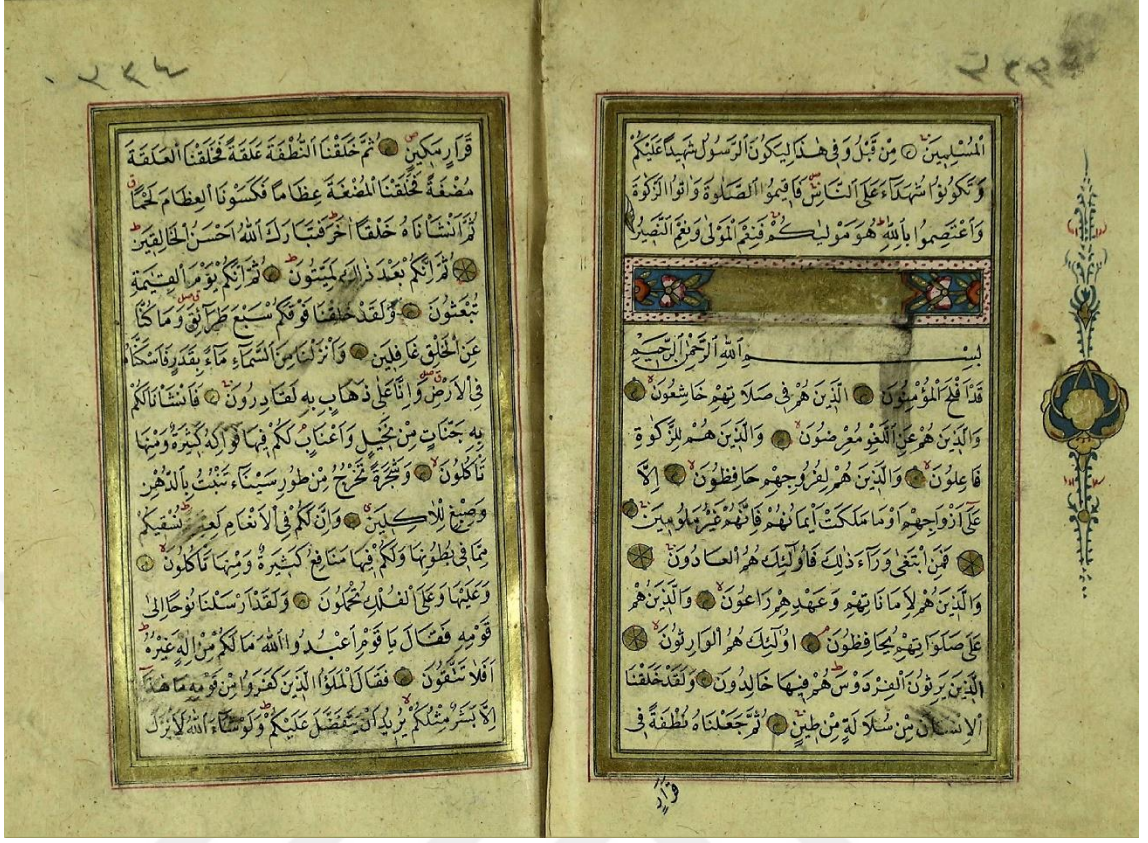 الْمُسْلِمِينَ مِنْ قَبْلُ وَفِى هٰذَا لِيَكُونَ الرَّسُولُ شَهِيدًا عَلَيْكُمْ
وَتَكُونُوا شُهَدَآءَ عَلَى النَّاسِ فَاَقِيمُوا الصَّلٰوةَ وَاٰتُوا الزَّكٰوةَ
وَاعْتَصِمُوا بِاللّٰهِ هُوَ مَوْلٰيكُمْ فَنِعْمَ الْمَوْلٰى وَنِعْمَ النَّصِيرُ
بِسْمِ اللّٰهِ الرَّحْمٰنِ الرَّحِيمِ
قَدْ اَفْلَحَ الْمُؤْمِنُونَ الَّذِينَ هُمْ فِى صَلَاتِهِمْ خَاشِعُونَ
وَالَّذِينَ هُمْ عَنِ اللَّغْوِ مُعْرِضُونَ وَالَّذِينَ هُمْ لِلزَّكٰوةِ
فَاعِلُونَ وَالَّذِينَ هُمْ لِفُرُوجِهِمْ حَافِظُونَ اِلَّا
عَلٰٓى اَزْوَاجِهِمْ اَوْ مَا مَلَكَتْ اَيْمَانُهُمْ فَاِنَّهُمْ غَيْرُ مَلُومِينَ
فَمَنِ ابْتَغٰى وَرَآءَ ذٰلِكَ فَاُولٰٓئِكَ هُمُ الْعَادُونَ
وَالَّذِينَ هُمْ لِاَمَانَاتِهِمْ وَعَهْدِهِمْ رَاعُونَ وَالَّذِينَ هُمْ
عَلٰى صَلَوَاتِهِمْ يُحَافِظُونَ اُولٰٓئِكَ هُمُ الْوَارِثُونَ
الَّذِينَ يَرِثُونَ الْفِرْدَوْسَ هُمْ فِيهَا خَالِدُونَ وَلَقَدْ خَلَقْنَا
الْاِنْسَانَ مِنْ سُلَالَةٍ مِنْ طِينٍ ثُمَّ جَعَلْنَاهُ نُطْفَةً فِى
قَرَارٍ
قَرَارٍ مَكِينٍ ثُمَّ خَلَقْنَا النُّطْفَةَ عَلَقَةً فَخَلَقْنَا الْعَلَقَةَ
مُضْغَةً فَخَلَقْنَا الْمُضْغَةَ عِظَامًا فَكَسَوْنَا الْعِظَامَ لَحْمًا
ثُمَّ اَنْشَاْنَاهُ خَلْقًا اٰخَرَ فَتَبَارَكَ اللّٰهُ اَحْسَنُ الْخَالِقِينَ
ثُمَّ اِنَّكُمْ بَعْدَ ذٰلِكَ لَمَيِّتُونَ ثُمَّ اِنَّكُمْ يَوْمَ الْقِيٰمَةِ
تُبْعَثُونَ وَلَقَدْ خَلَقْنَا فَوْقَكُمْ سَبْعَ طَرَآئِقَ وَمَا كُنَّا
عَنِ الْخَلْقِ غَافِلِينَ وَاَنْزَلْنَا مِنَ السَّمَآءِ مَآءً بِقَدَرٍ فَاَسْكَنَّاهُ
فِى الْاَرْضِ وَاِنَّا عَلٰى ذَهَابٍ بِهِ لَقَادِرُونَ فَاَنْشَاْنَا لَكُمْ
بِهِ جَنَّاتٍ مِنْ نَخِيلٍ وَاَعْنَابٍ لَكُمْ فِيهَا فَوَاكِهُ كَثِيرَةٌ وَمِنْهَا
تَاْكُلُونَ وَشَجَرَةً تَخْرُجُ مِنْ طُورِ سَيْنَآءَ تَنْبُتُ بِالدُّهْنِ
وَصِبْغٍ لِلْاٰكِلِينَ وَاِنَّ لَكُمْ فِى الْاَنْعَامِ لَعِبْرَةً نُسْقِيكُمْ
مِمَّا فِى بُطُونِهَا وَلَكُمْ فِيهَا مَنَافِعُ كَثِيرَةٌ وَمِنْهَا تَاْكُلُونَ
وَعَلَيْهَا وَعَلَى الْفُلْكِ تُحْمَلُونَ وَلَقَدْ اَرْسَلْنَا نُوحًا اِلٰى
قَوْمِهِ فَقَالَ يَا قَوْمِ اعْبُدُوا اللّٰهَ مَا لَكُمْ مِنْ اِلٰهٍ غَيْرُهُ
اَفَلَا تَتَّقُونَ فَقَالَ الْمَلَؤُا الَّذِينَ كَفَرُوا مِنْ قَوْمِهِ مَا هٰذَآ
اِلَّا بَشَرٌ مِثْلُكُمْ يُرِيدُ اَنْ يَتَفَضَّلَ عَلَيْكُمْ وَلَوْ شَآءَ اللّٰهُ لَاَنْزَلَ